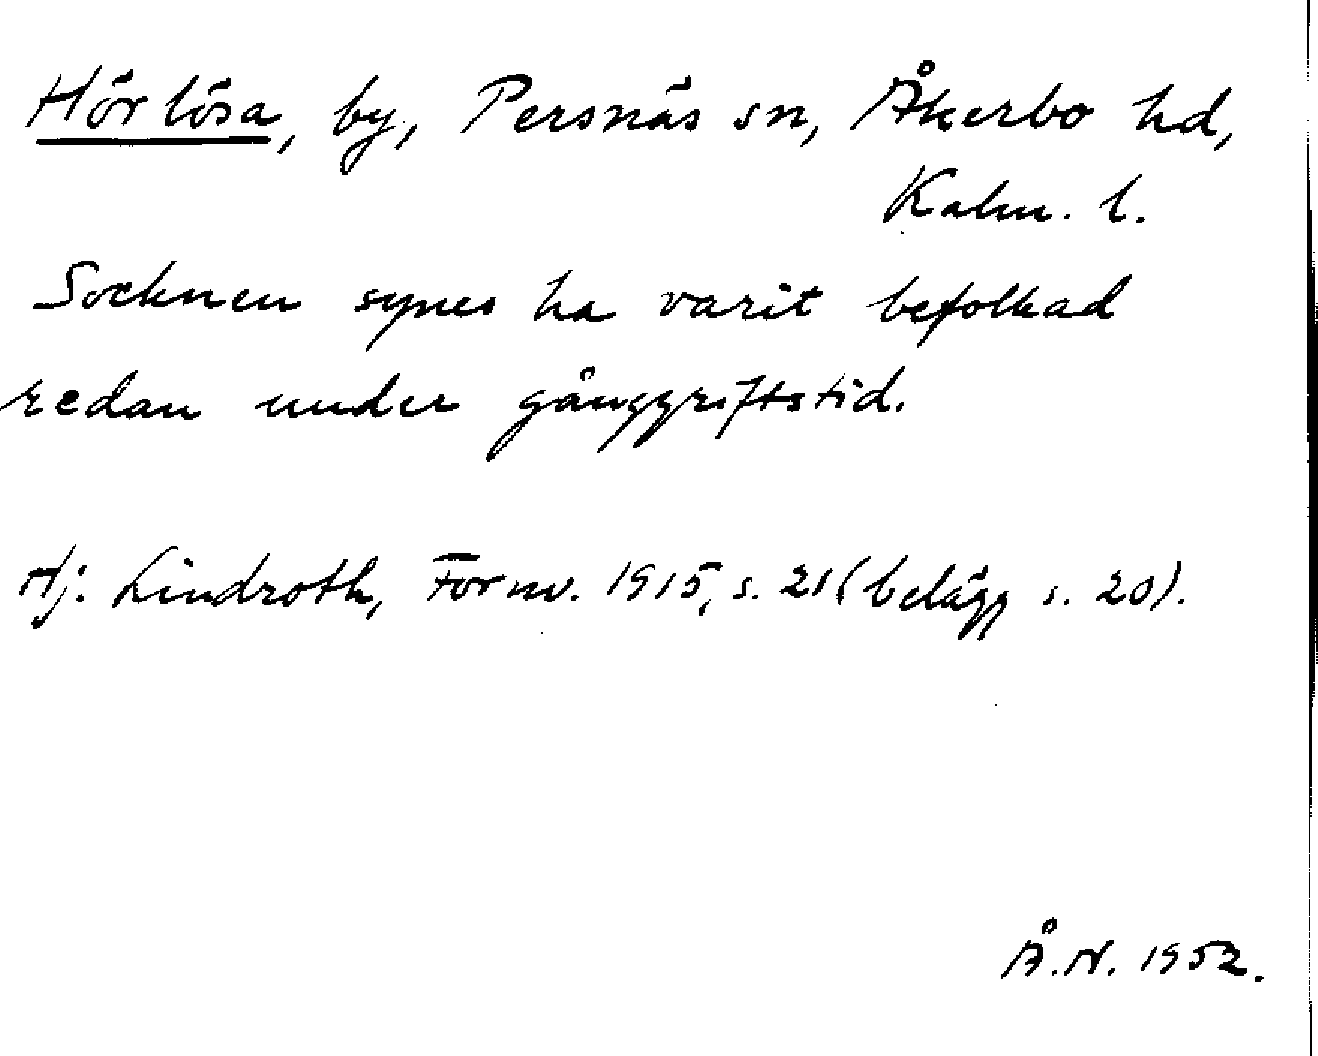 Hörlösa, by, Persnäs sn, Åkerbo hd,
Kalm. l.
Socknen synes ha varit befolkad
redan under gånggriftstid.
Hj. Lindroth, Fornv. 1915, s. 21 (belägg s. 20).
Å.N. 1952.